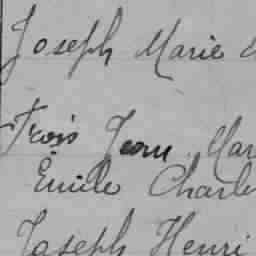 Joseph Marie
Trois Jean Mar
Emile Charle
Joseph Henri